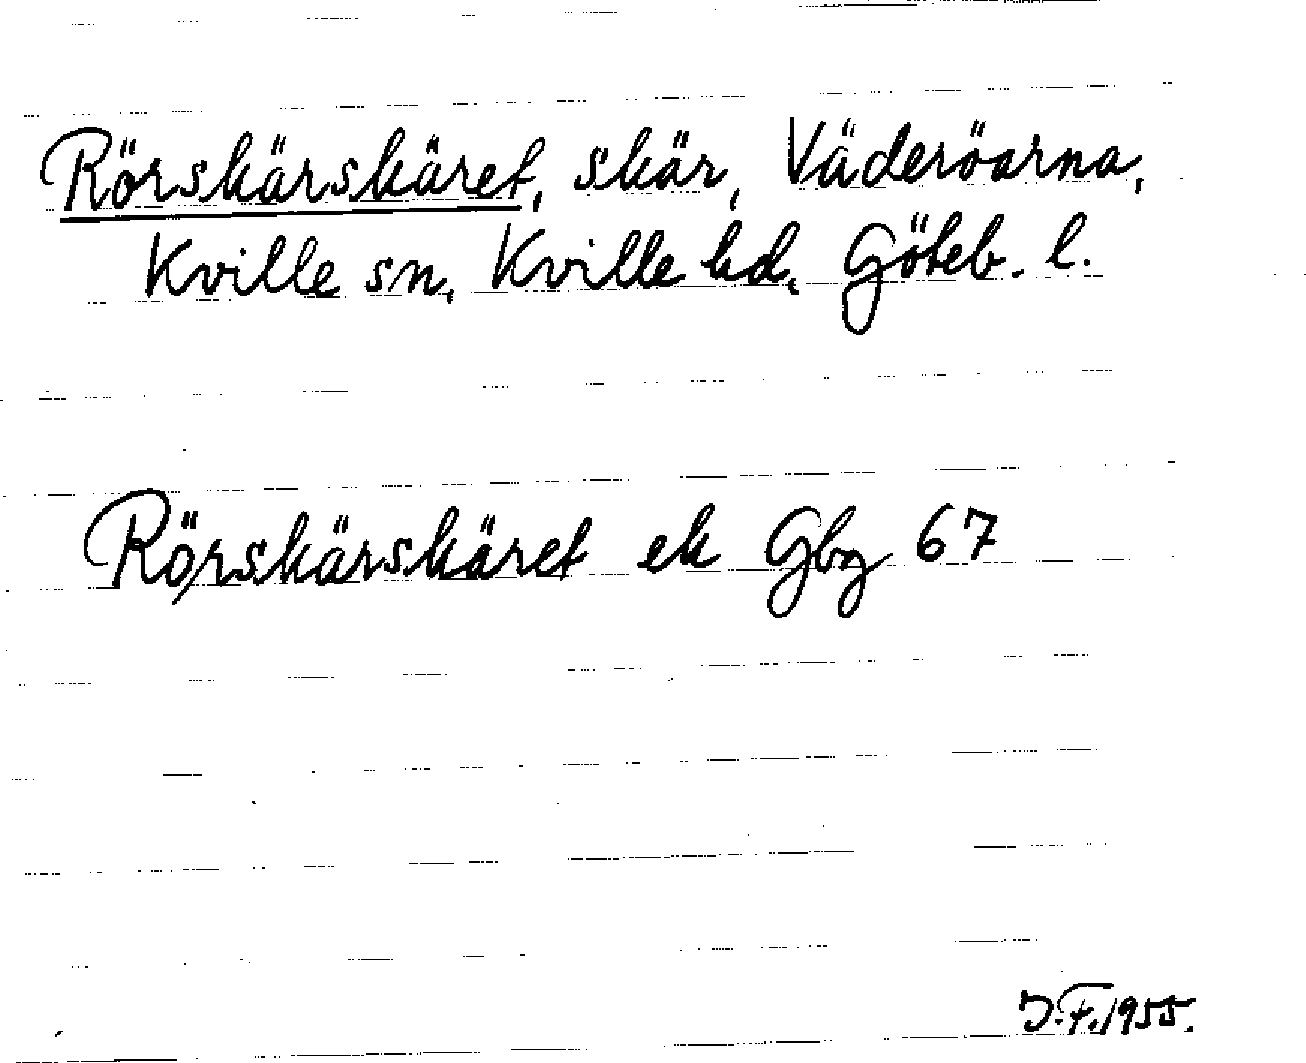 Rörskärskäret, skär, Väderöarna,
Kville sn, Kville hd, Göteb. l.
Rörskärskäret ek Gbg 67
J.F. 1955.